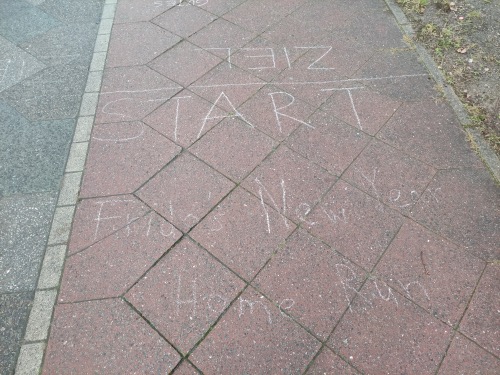 ZIEL
START
Frida's New Year
Home Run